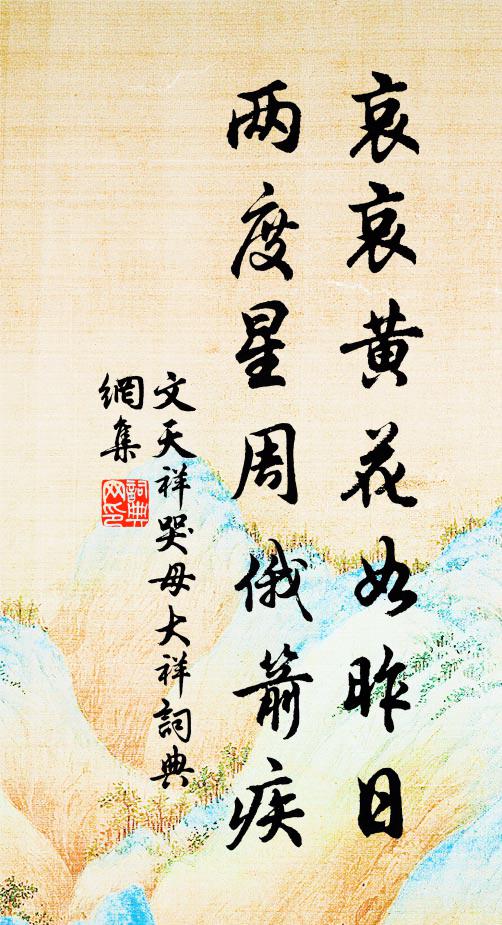 哀哀黄花如昨日
两度星周俄箭疾
文天祥哭母大祥詞典
網集
詞典
网印